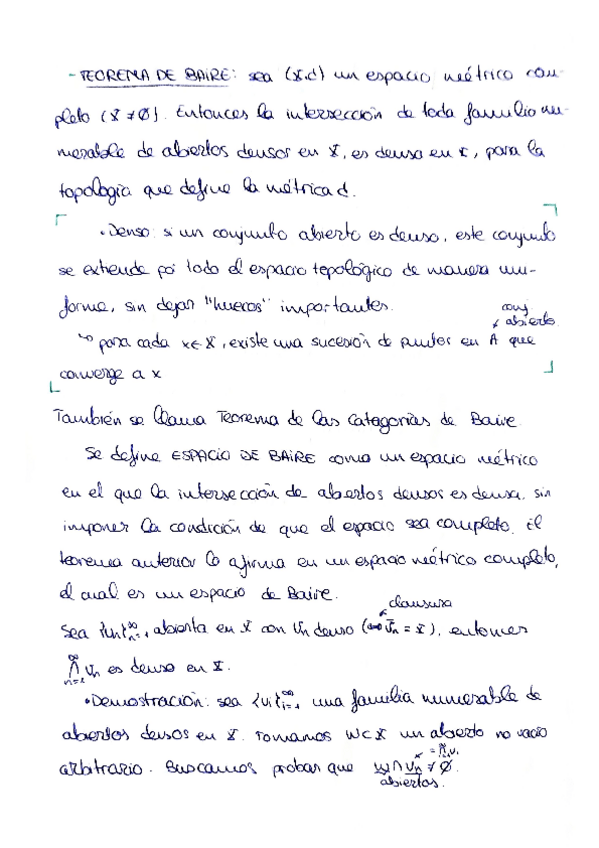 - TEOREMA DE BAIRE: sea (X,d) un espacio métrico com-
pleto (X ≠ ∅). Entonces la intersección de toda familia nu-
merable de abiertos densos en X, es densa en X, para la
topología que define la métrica d.
• Denso: si un conjunto abierto es denso, este conjunto
se extiende por todo el espacio topológico de manera uni-
forme, sin dejar "huecos" importantes.
conj
abierto
↳ para cada x∈X, existe una sucesión de puntos en A que
converge a x
También se llama Teorema de las Categorías de Baire.
Se define ESPACIO DE BAIRE como un espacio métrico
en el que la intersección de abiertos densos es densa, sin
imponer la condición de que el espacio sea completo. El
teorema anterior lo afirma en un espacio métrico completo,
el cual es un espacio de Baire.
clausura
Sea {Un}∞n=1, abierta en X con Un denso (⇔ Ūn = X), entonces
∞⋂n=1 Un es denso en X.
• Demostración: sea {Ui}∞i=1 una familia numerable de
abiertos densos en X. Tomamos W⊂X un abierto no vacío
arbitrario. Buscamos probar que W∩Un ≠ ∅.
abiertos.